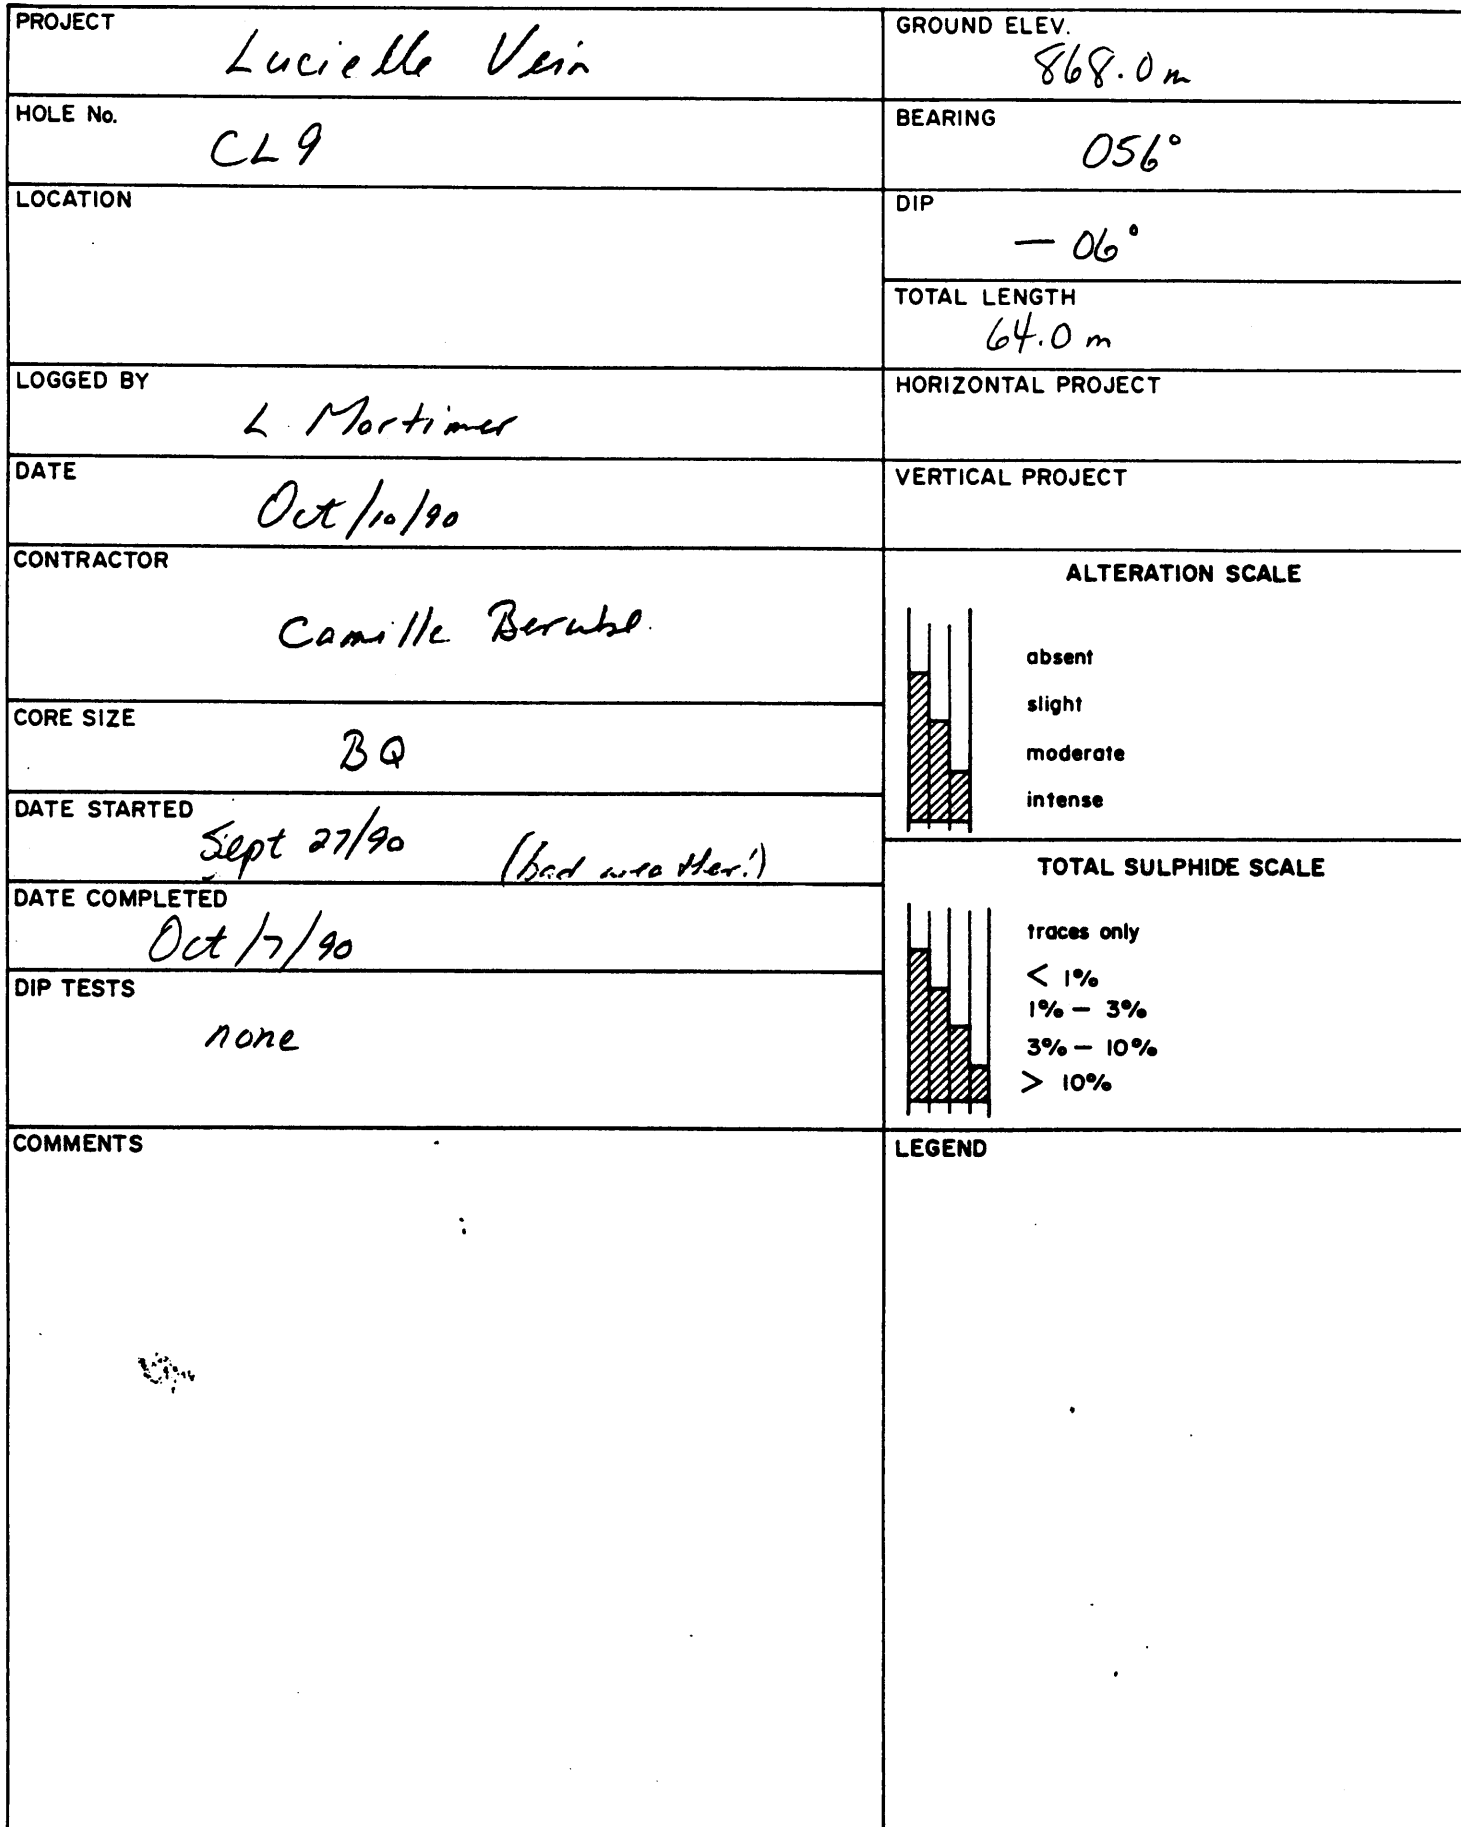 PROJECT
Lucielle Vein
HOLE No.
CL 9
LOCATION
LOGGED BY
L. Mortimer
DATE
Oct/10/90
CONTRACTOR
Camille Berube.
CORE SIZE
BQ
DATE STARTED
Sept 27/90 (bad weather!)
DATE COMPLETED
Oct/7/90
DIP TESTS
none
COMMENTS
GROUND ELEV.
868.0 m
BEARING
056°
DIP
— 06°
TOTAL LENGTH
64.0 m
HORIZONTAL PROJECT
VERTICAL PROJECT
ALTERATION SCALE
absent
slight
moderate
intense
TOTAL SULPHIDE SCALE
traces only
< 1%
1% — 3%
3% — 10%
> 10%
LEGEND